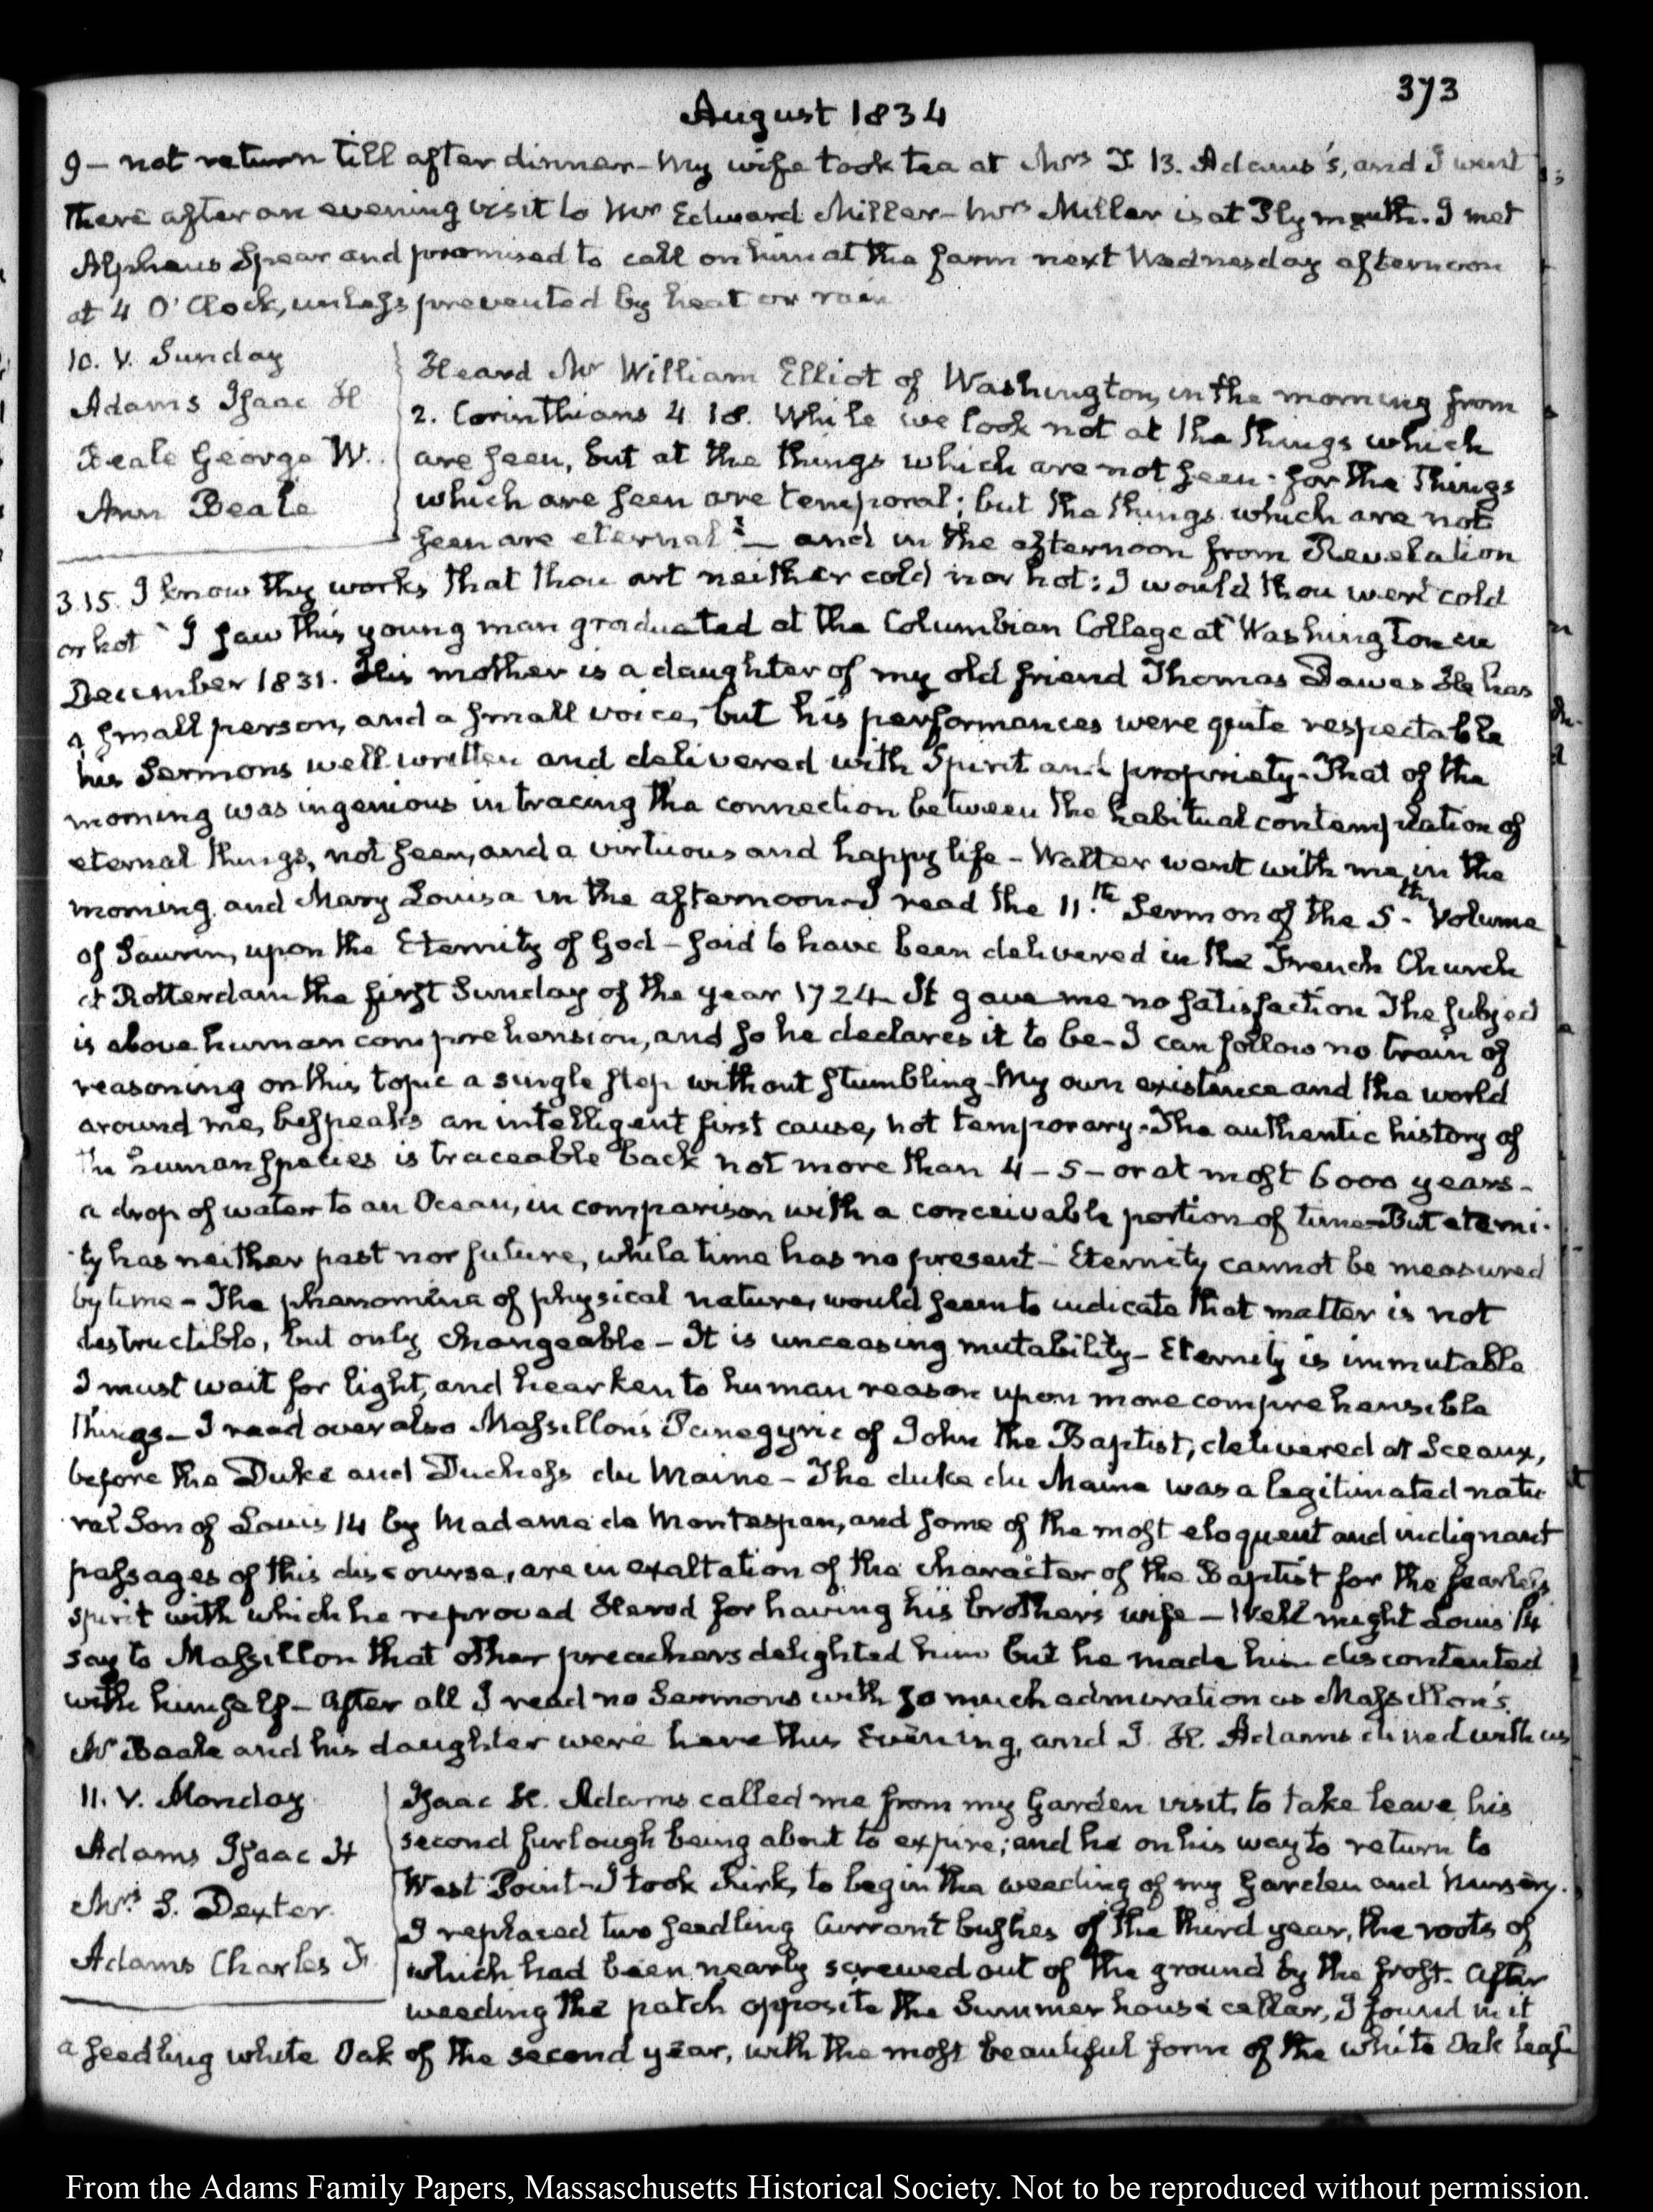 373
August 1834
9 — not return till after dinner — My wife took tea at Mrs T. B. Adams's, and I went
there after an evening visit to Mr Edward Miller — Mrs Miller is at Plymouth. I met
Alpheus Spear and promised to call on him at the farm next Wednesday afternoon
at 4 O'Clock, unless prevented by heat or rain
10. V. Sunday
Adams Isaac H
Beale George W.
Ann Beale
Heard Mr William Elliot of Washington, in the morning from
2. Corinthians 4 18. While we look not at the things which
are seen, but at the things which are not seen. for the things
which are seen are temporal; but the things which are not
seen are eternal — and in the afternoon from Revelation
3.15. I know thy works that thou art neither cold nor hot: I would thou wert cold
or hot I saw this young man graduated at the Columbian College at Washington in
December 1831. His mother is a daughter of my old friend Thomas Dawes He has
a small person, and a small voice, but his performances were quite respectable
his Sermons well written and delivered with Spirit and propriety. That of the
morning was ingenious in tracing the connection between the habitual contemplation of
eternal things, not seen, and a virtuous and happy life — Walter went with me in the
morning and Mary Louisa in the afternoon — I read the 11.th Sermon of the 5.th Volume
of Saurin, upon the Eternity of God — said to have been delivered in the French Church
at Rotterdam the first Sunday of the year 1724. It gave me no satisfaction The subject
is above human comprehension, and so he declares it to be — I can follow no train of
reasoning on this topic a single step without stumbling — My own existence and the world
around me, bespeaks an intelligent first cause, not temporary. The authentic history of
the human species is traceable back not more than 4 — 5 — or at most 6000 years —
a drop of water to an Ocean, in comparison with a conceivable portion of time — But eterni-
ty has neither past nor future, while time has no present — Eternity cannot be measured
by time — The phænomina of physical nature, would seem to indicate that matter is not
destructible, but only changeable — It is unceasing mutability — Eternity is immutable
I must wait for light, and hearken to human reason upon more comprehensible
things — I read over also Massillon's Panegyric of John the Baptist, delivered at Sceaux,
before the Duke and Duchess du Maine — The duke du Maine was a legitimated natu
ral Son of Louis 14 by Madame de Montespan, and some of the most eloquent and indignant
passages of this discourse, are in exaltation of the character of the Baptist for the fearless
spirit with which he reproved Herod for having his brother's wife — Well might Louis 14
say to Massillon that other preachers delighted him but he made him discontented
with himself — After all I read no Sermons with so much admiration as Massillon's.
Mr Beale and his daughter were here this Evening, and I. H. Adams dined with us
11. V. Monday
Adams Isaac H
Mrs S. Dexter.
Adams Charles F.
Isaac H. Adams called me from my Garden visit, to take leave his
second furlough being about to expire; and he on his way to return to
West Point — I took Kirk, to begin the weeding of my Garden and Nursery.
I replaced two seedling Currant bushes of the third year, the roots of
which had been nearly screwed out of the ground by the frost. After
weeding the patch opposite the Summer house cellar, I found in it
a seedling white Oak of the second year, with the most beautiful form of the white Oak leaf
From the Adams Family Papers, Massachusetts Historical Society. Not to be reproduced without permission.